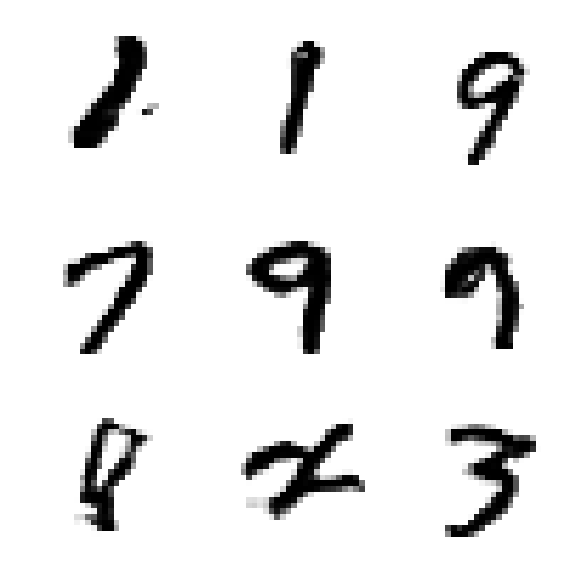 1 1 9
7 9 9
8 2 3